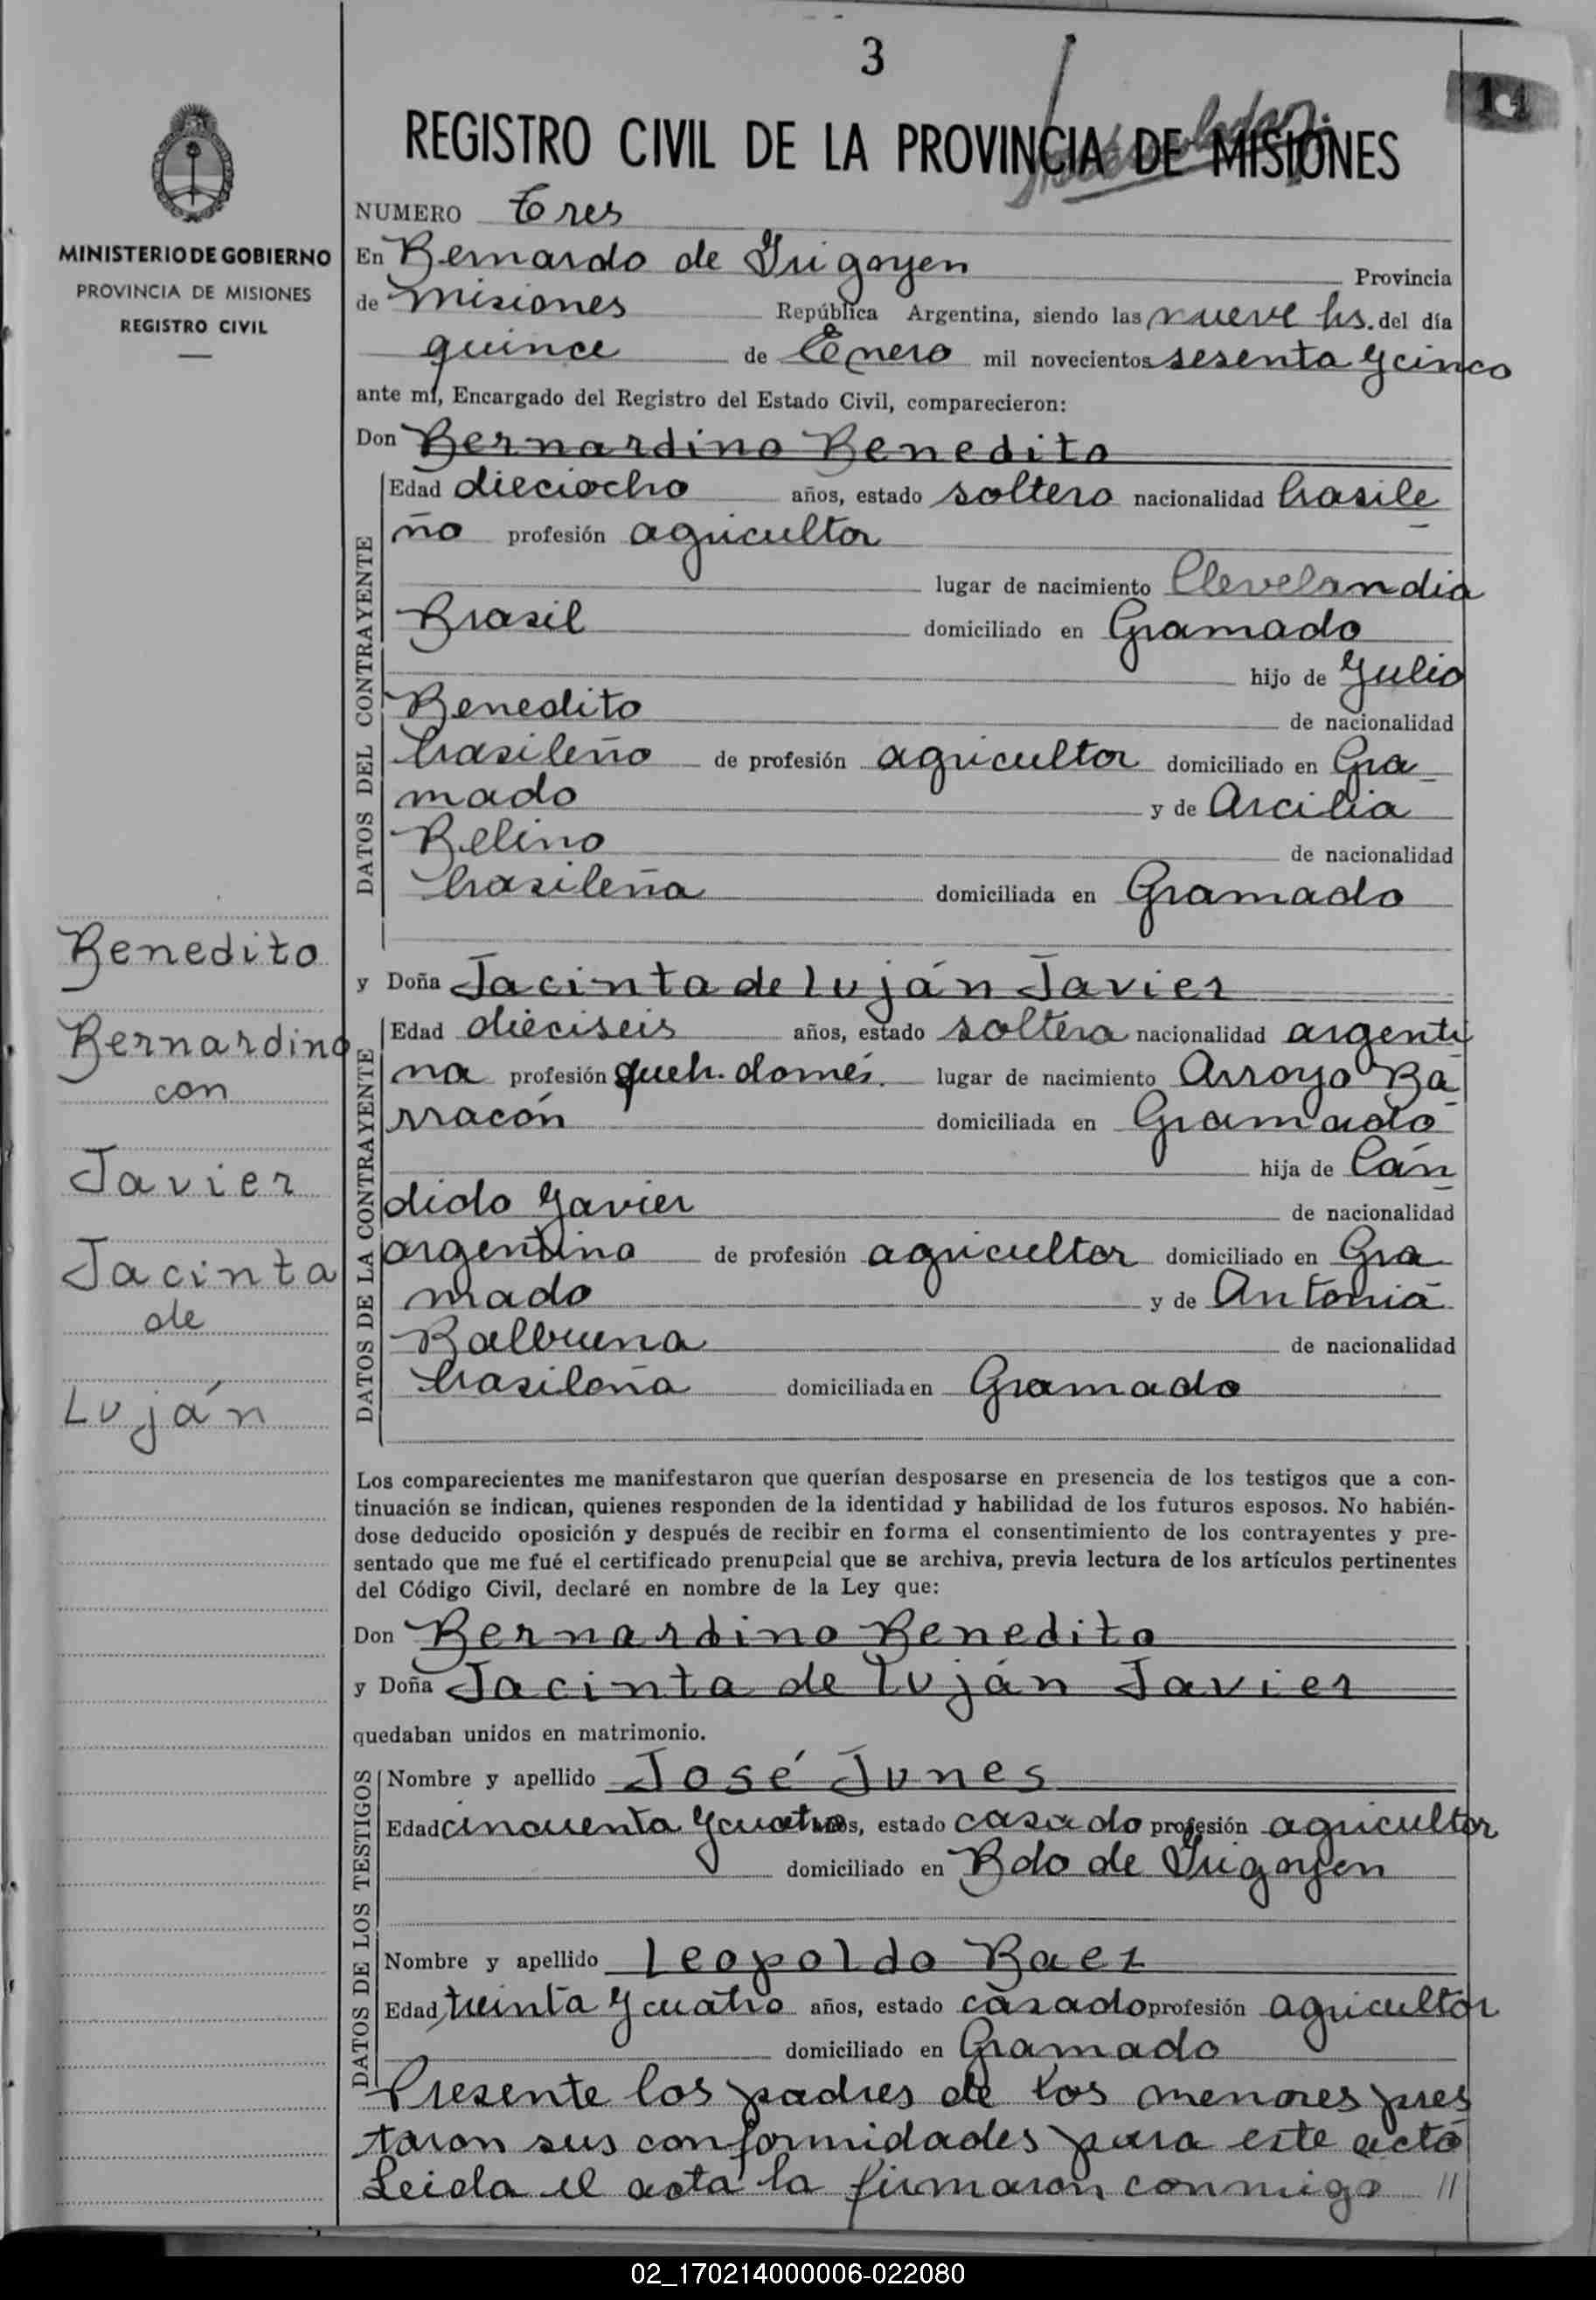 3
11
REGISTRO CIVIL DE LA PROVINCIA DE MISIONES
MINISTERIO DE GOBIERNO
PROVINCIA DE MISIONES
REGISTRO CIVIL
NUMERO Tres
En Bernardo de Irigoyen Provincia
de Misiones República Argentina, siendo las nueve hs. del día
quince de Enero mil novecientos sesenta y cinco
ante mí, Encargado del Registro del Estado Civil, comparecieron:
Don Bernardino Benedito
DATOS DEL CONTRAYENTE
Edad dieciocho años, estado soltero nacionalidad brasile
ño profesión agricultor
lugar de nacimiento Clevelandia
Brasil domiciliado en Gramado
hijo de Julio
Benedito de nacionalidad
brasileño de profesión agricultor domiciliado en Gra
mado y de Arcilia
Belino de nacionalidad
brasileña domiciliada en Gramado
Benedito
Bernardino
con
Javier
Jacinta
de
Luján
y Doña Jacinta de Luján Javier
DATOS DE LA CONTRAYENTE
Edad dieciseis años, estado soltera nacionalidad argenti
na profesión queh. domés. lugar de nacimiento Arroyo Ba
rracón domiciliada en Gramado
hija de Cán
dido Javier de nacionalidad
argentino de profesión agricultor domiciliado en Gra
mado y de Antonia
Balbuena de nacionalidad
brasileña domiciliada en Gramado
Los comparecientes me manifestaron que querían desposarse en presencia de los testigos que a con-
tinuación se indican, quienes responden de la identidad y habilidad de los futuros esposos. No habién-
dose deducido oposición y después de recibir en forma el consentimiento de los contrayentes y pre-
sentado que me fué el certificado prenupcial que se archiva, previa lectura de los artículos pertinentes
del Código Civil, declaré en nombre de la Ley que:
Don Bernardino Benedito
y Doña Jacinta de Luján Javier
quedaban unidos en matrimonio.
DATOS DE LOS TESTIGOS
Nombre y apellido José Junes
Edad cincuenta y cuatro años, estado casado profesión agricultor
domiciliado en Bdo de Irigoyen
Nombre y apellido Leopoldo Baez
Edad treinta y cuatro años, estado casado profesión agricultor
domiciliado en Gramado
Presente los padres de los menores pres
taron sus conformidades para este acto
Leida el acta la firmaron conmigo //
02_170214000006-022080